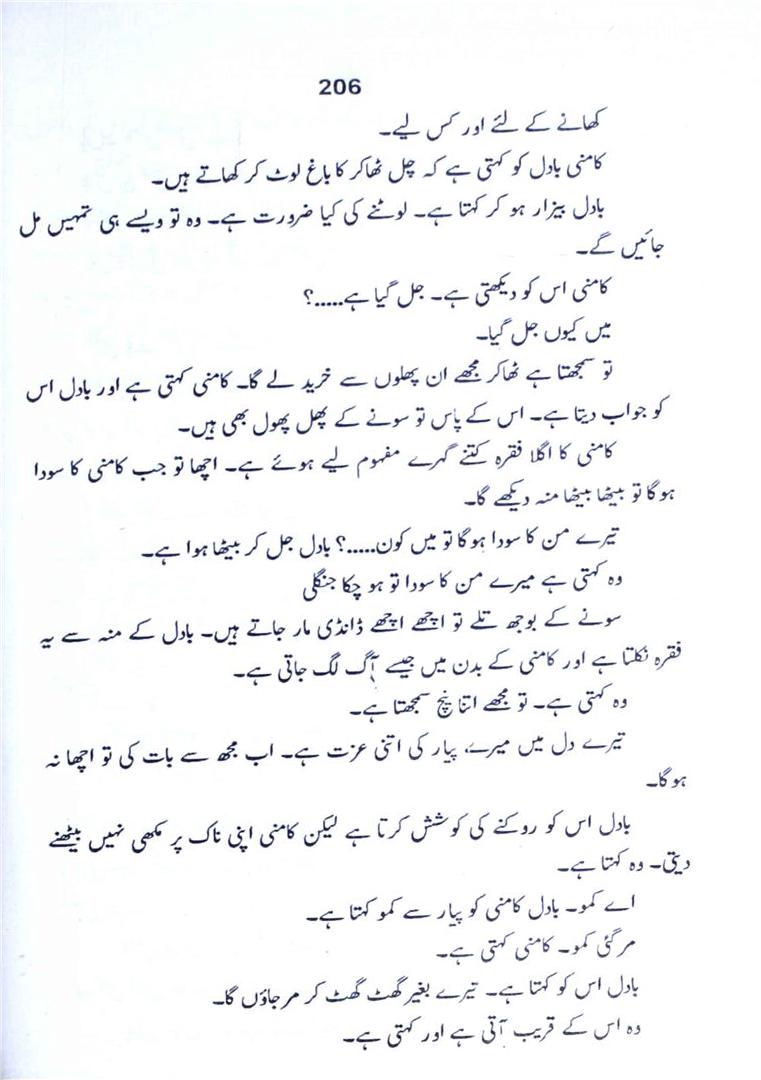 206
کھانے کے لئے اور کس لیے۔
کامنی بادل کو کہتی ہے کہ چل ٹھاکر کا باغ لوٹ کر کھاتے ہیں۔
بادل بیزار ہو کر کہتا ہے۔ لوٹنے کی کیا ضرورت ہے۔ وہ تو ویسے ہی تمہیں مل
جائیں گے۔
کامنی اس کو دیکھتی ہے۔ جل گیا ہے.....؟
میں کیوں جل گیا۔
تو سمجھتا ہے ٹھاکر مجھے ان پھلوں سے خرید لے گا۔ کامنی کہتی ہے اور بادل اس
کو جواب دیتا ہے۔ اس کے پاس تو سونے کے پھل پھول بھی ہیں۔
کامنی کا اگلا فقرہ کتنے گہرے مفہوم لیے ہوئے ہے۔ اچھا تو جب کامنی کا سودا
ہوگا تو بیٹھا بیٹھا منہ دیکھے گا۔
تیرے من کا سودا ہوگا تو میں کون.....؟ بادل جل کر بیٹھا ہوا ہے۔
وہ کہتی ہے میرے من کا سودا تو ہو چکا جنگلی
سونے کے بوجھ تلے تو اچھے اچھے ڈانڈی مار جاتے ہیں۔ بادل کے منہ سے یہ
فقرہ نکلتا ہے اور کامنی کے بدن میں جیسے آگ لگ جاتی ہے۔
وہ کہتی ہے۔ تو مجھے اتنا نیچ سمجھتا ہے۔
تیرے دل میں میرے پیار کی اتنی عزت ہے۔ اب مجھ سے بات کی تو اچھا نہ
ہوگا۔
بادل اس کو روکنے کی کوشش کرتا ہے لیکن کامنی اپنی ناک پر مکھی نہیں بیٹھنے
دیتی۔ وہ کہتا ہے۔
اے کمو۔ بادل کامنی کو پیار سے کمو کہتا ہے۔
مرگئی کمو۔ کامنی کہتی ہے۔
بادل اس کو کہتا ہے۔ تیرے بغیر گھٹ گھٹ کر مرجاؤں گا۔
وہ اس کے قریب آتی ہے اور کہتی ہے۔